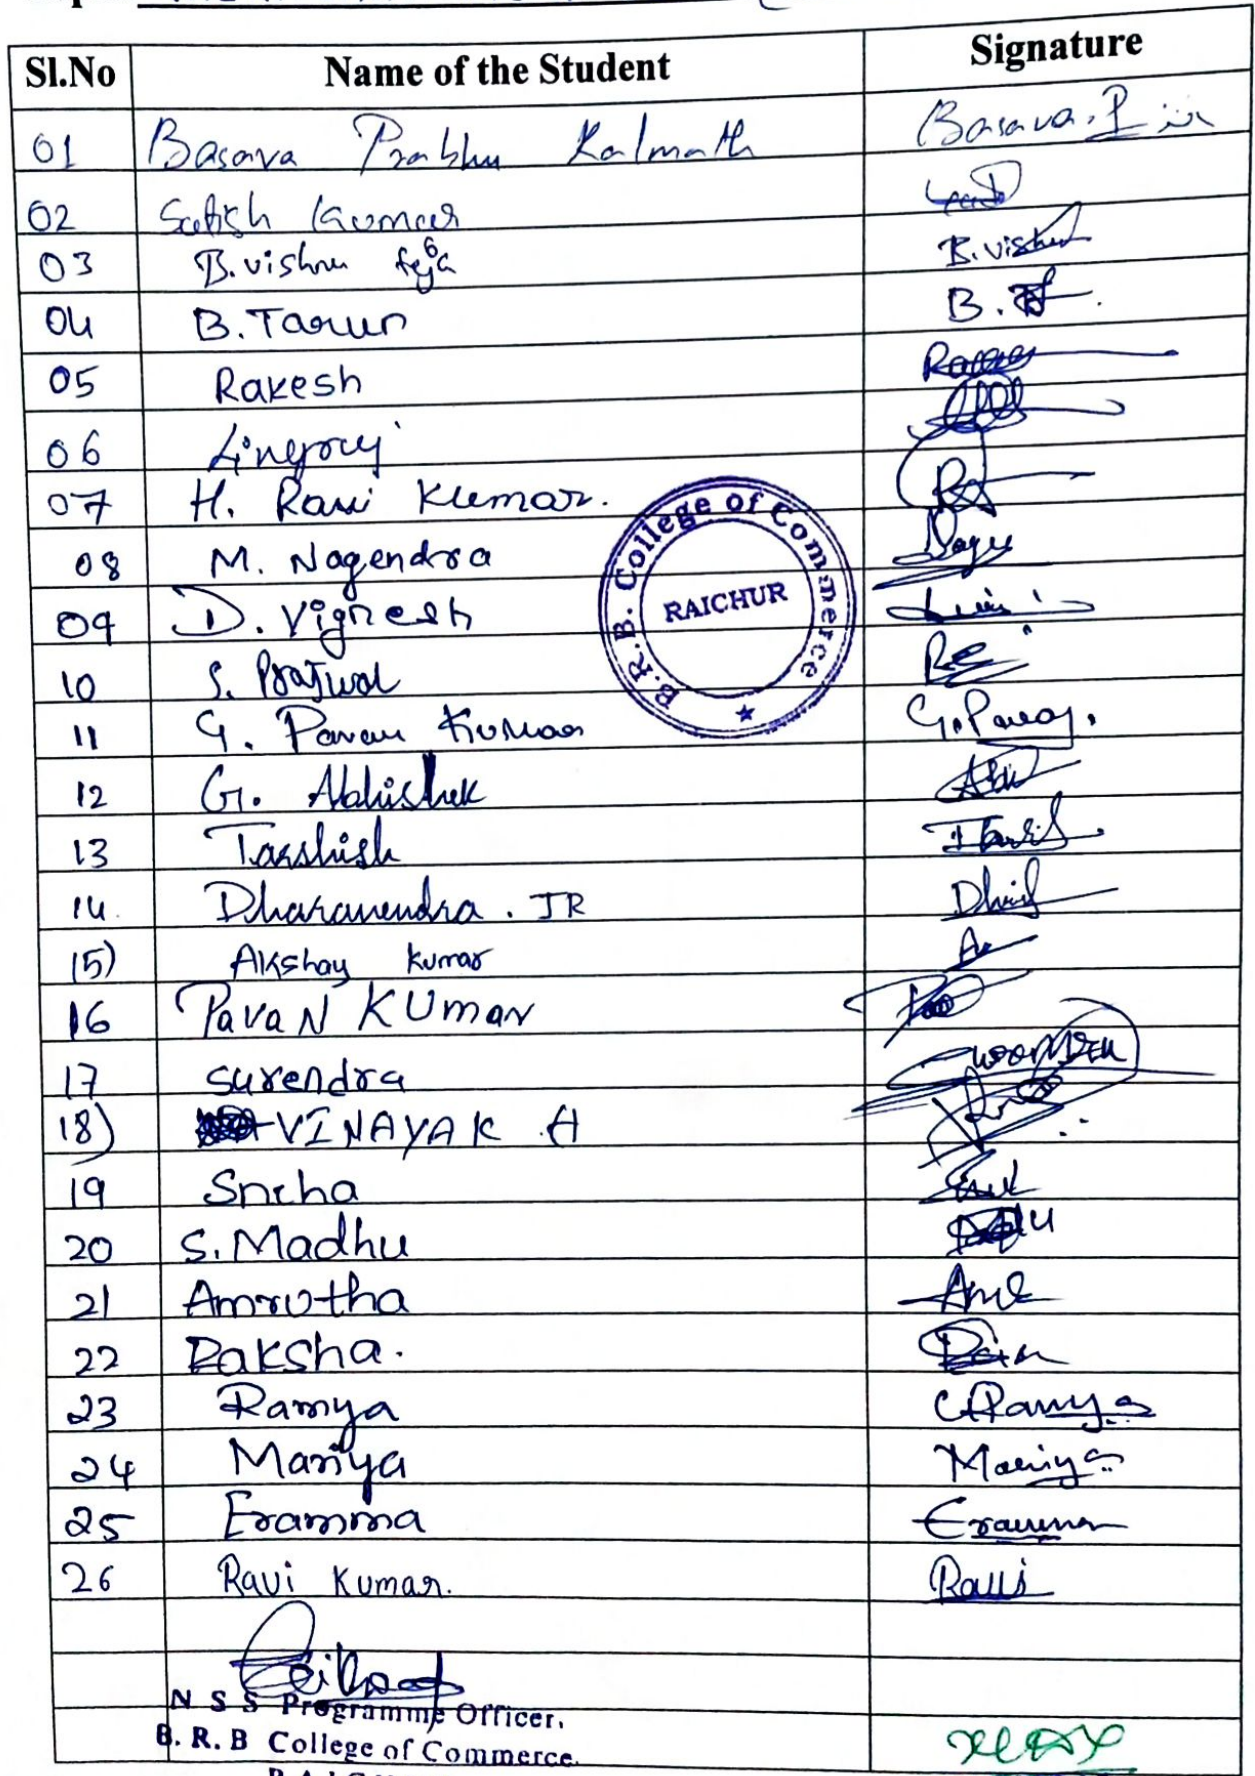 Sl.No Name of the Student Signature
01 Basava Prabhu Kalmath Basava.P
02 Satish Kumar
03 B.vishnu teja B.vishnu
04 B.Tarun B.
05 Rakesh
06 Lingraj
07 H. Ravi Kumar.
08 M. Nagendra
09 D. Vignesh
10 S. Prajwal
11 G. Pavan Kumar G.Pavan.
12 G. Abhishek Abhi
13 Tarshish
14. Dharanendra. JR
15) Akshay kumar
16 PavaN KUmar
17 surendra
18) VINAYAK .H
19 Sneha
20 S. Madhu
21 Amrutha
22 Raksha.
23 Ramya C.Ramya
24 Mariya Mariya
25 Eramma Eramma
26 Ravi Kumar. Ravi
B.R.B. College of Commerce
RAICHUR
N S S Programme Officer.
B. R. B College of Commerce.